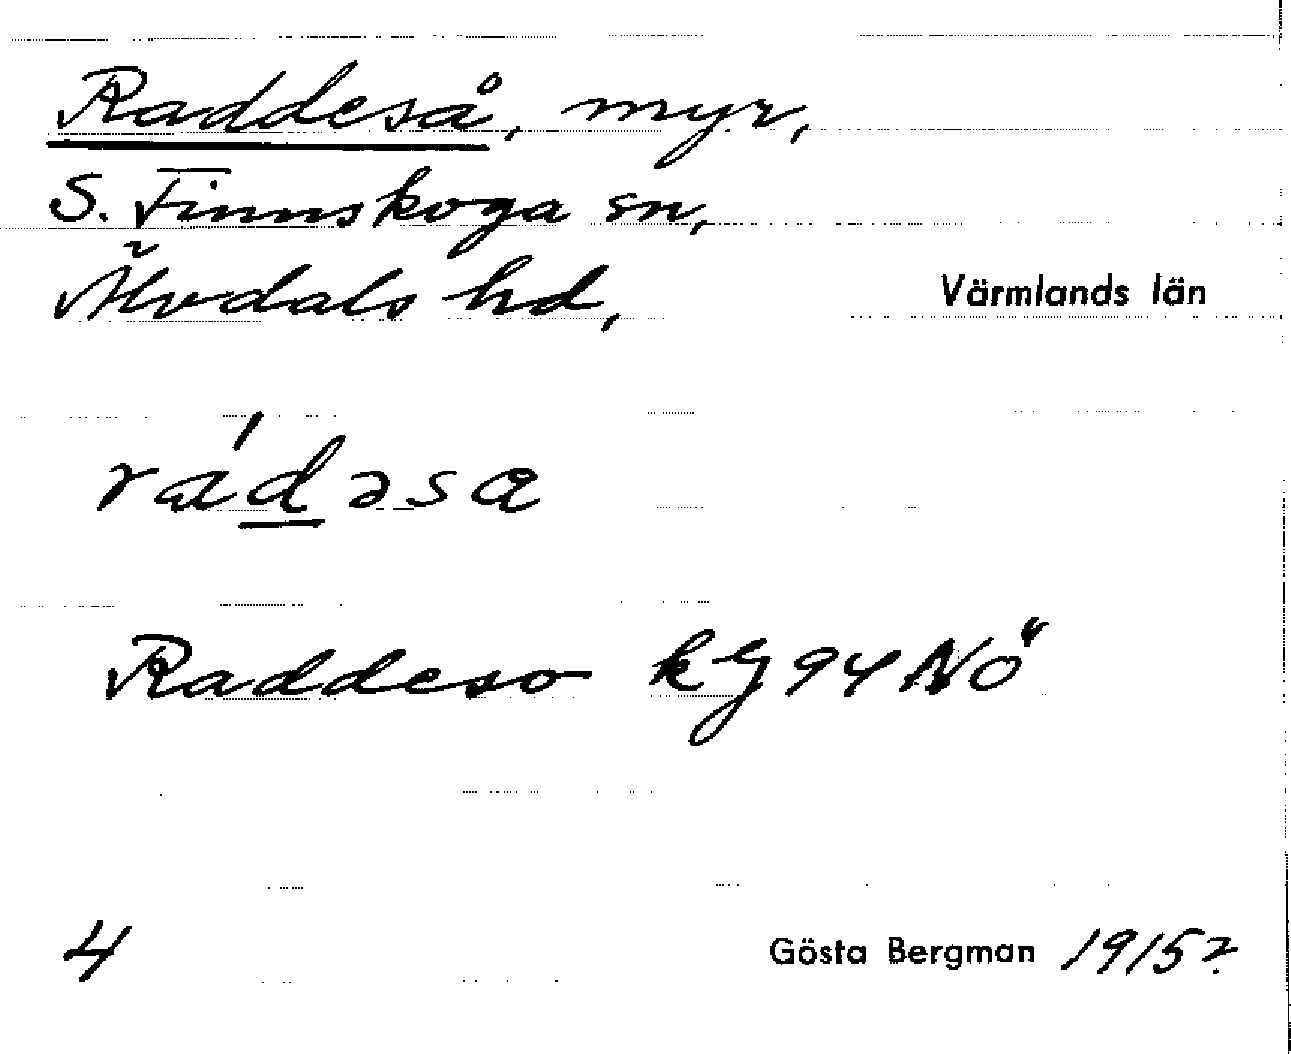 Raddeså, myr,
S. Finnskoga sn,
Älvdals hd,
Värmlands län
rád̲əsa
Raddeso kg 94 NÖ
4
Gösta Bergman 1915?